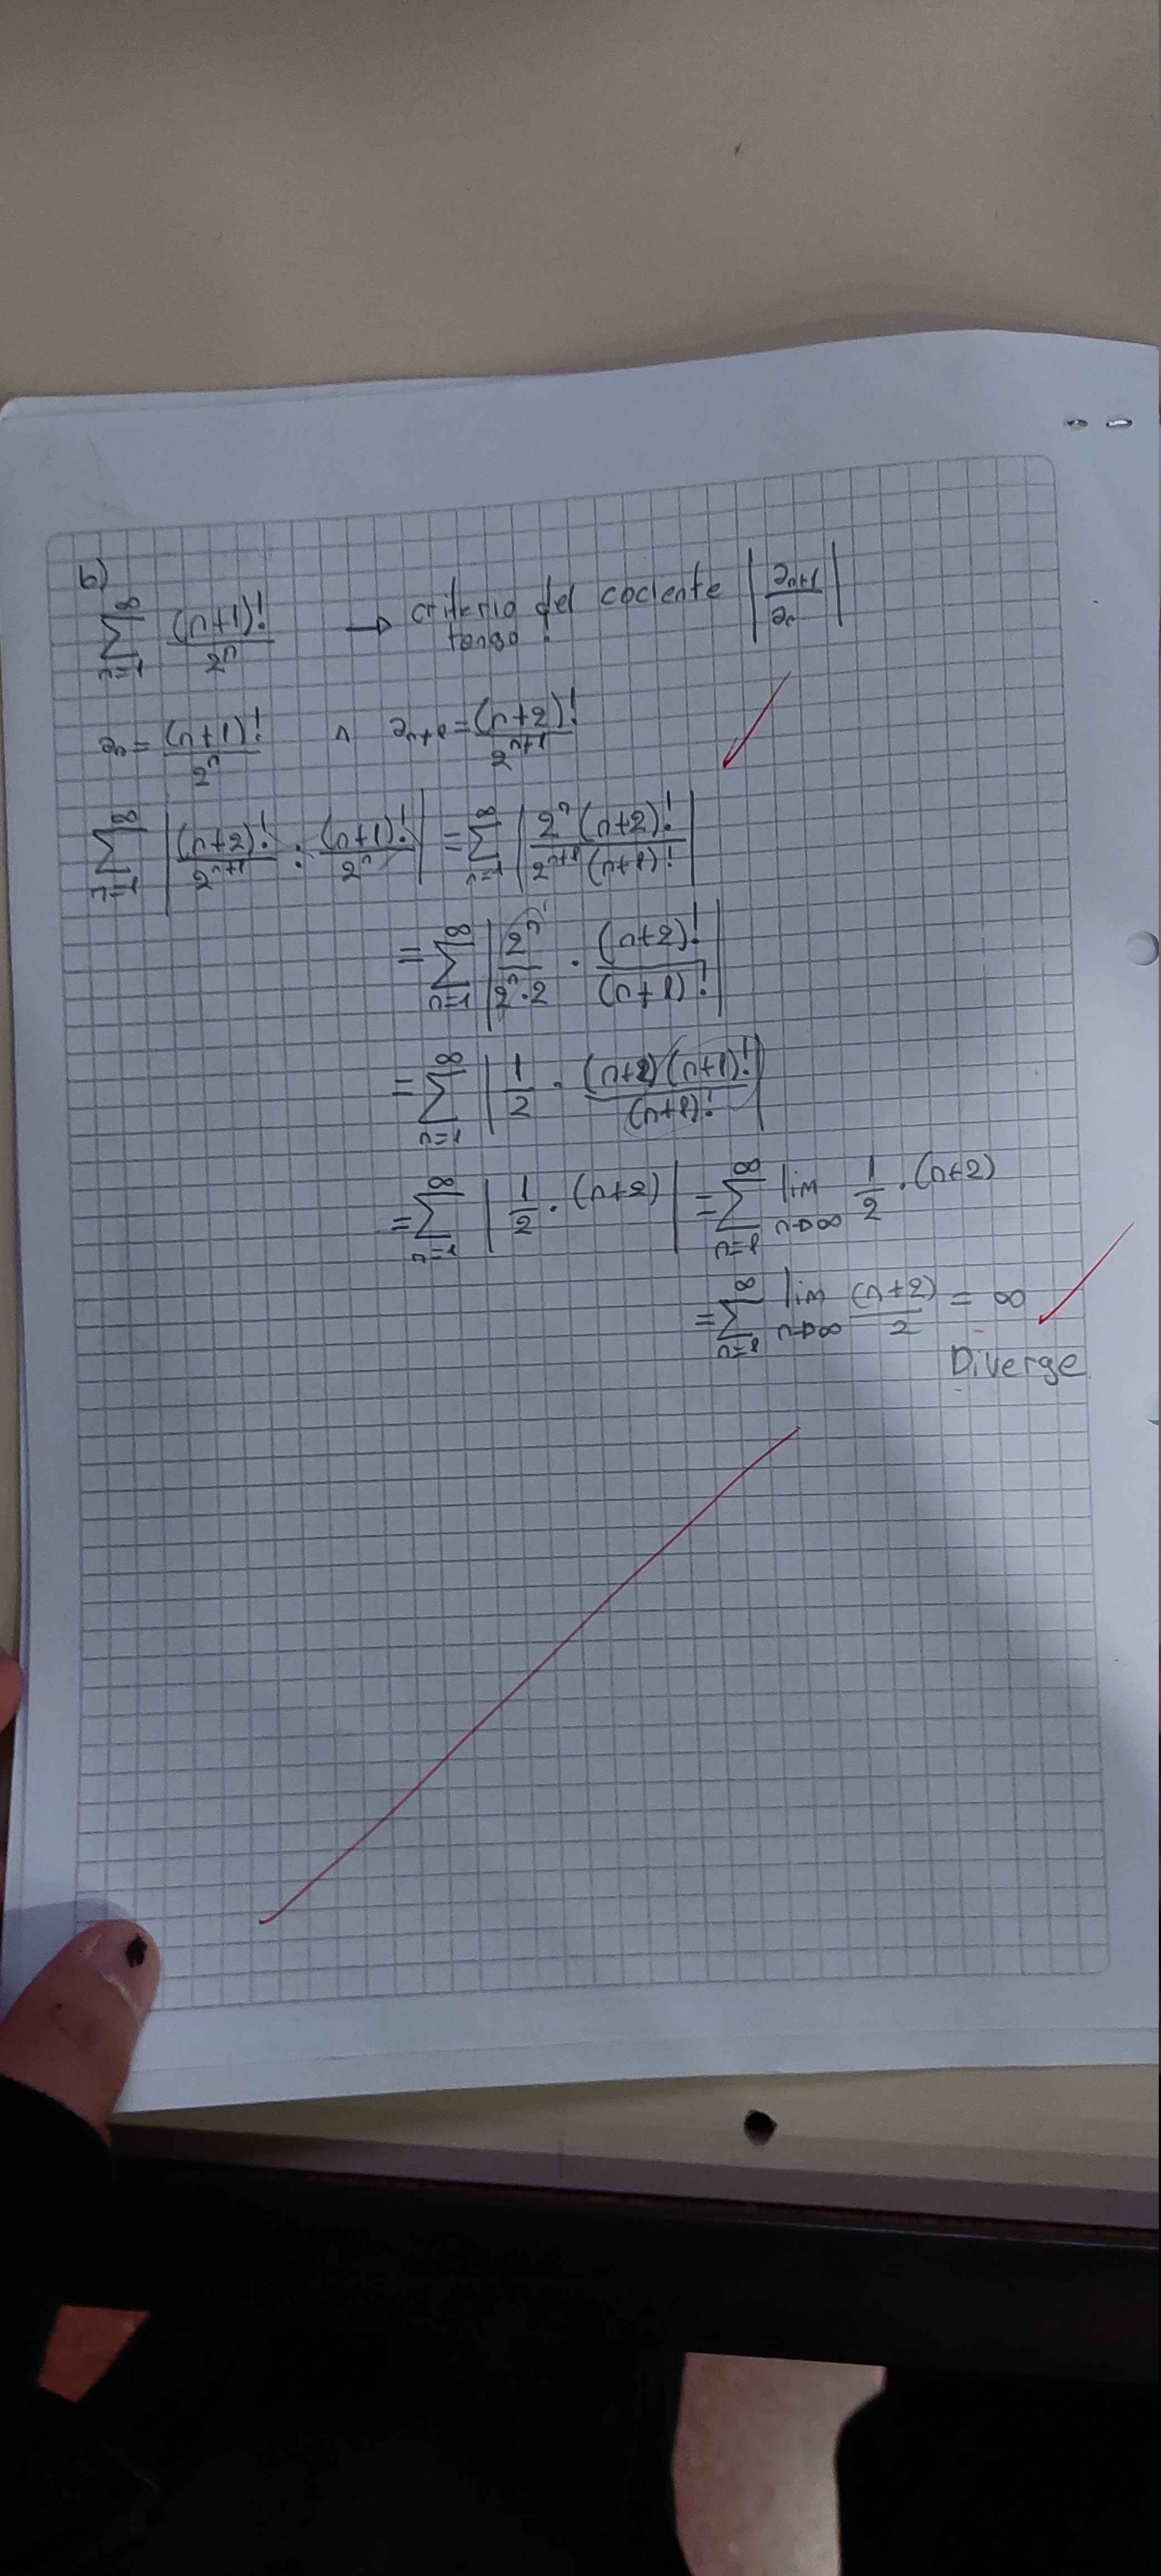 b)
∑_{n=1}^{∞} (n+1)!/2^n → criterio del cociente |a_{n+1}/a_n|
tengo:
a_n = (n+1)!/2^n ∧ a_{n+1} = (n+2)!/2^{n+1}
∑_{n=1}^{∞} |(n+2)!/2^{n+1} : (n+1)!/2^n| = ∑_{n=1}^{∞} |2^n (n+2)!/2^{n+1} (n+1)!|
= ∑_{n=1}^{∞} |2^n/2^n·2 · (n+2)!/(n+1)!|
= ∑_{n=1}^{∞} |1/2 · (n+2)(n+1)!/(n+1)!|
= ∑_{n=1}^{∞} |1/2 · (n+2)| = ∑_{n=1}^{∞} lim_{n→∞} 1/2 · (n+2)
= ∑_{n=1}^{∞} lim_{n→∞} (n+2)/2 = ∞
Diverge